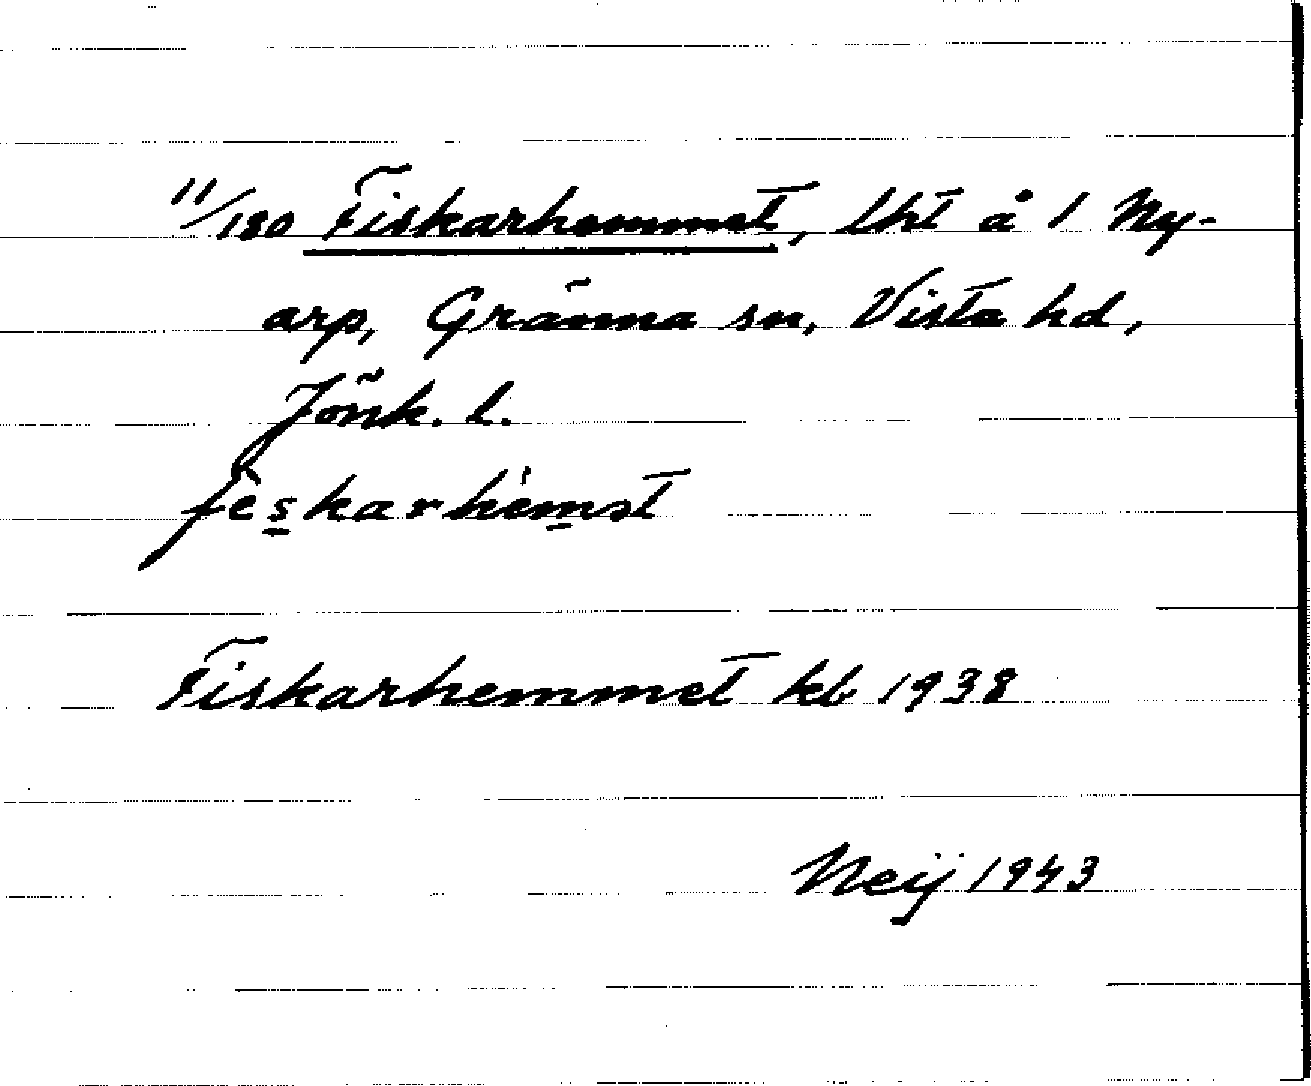 11/180 Fiskarhemmet, lht å 1 Ny-
arp, Gränna sn, Vista hd,
Jönk. l.
fèskarhémət
Fiskarhemmet kb 1938
Neij 1943